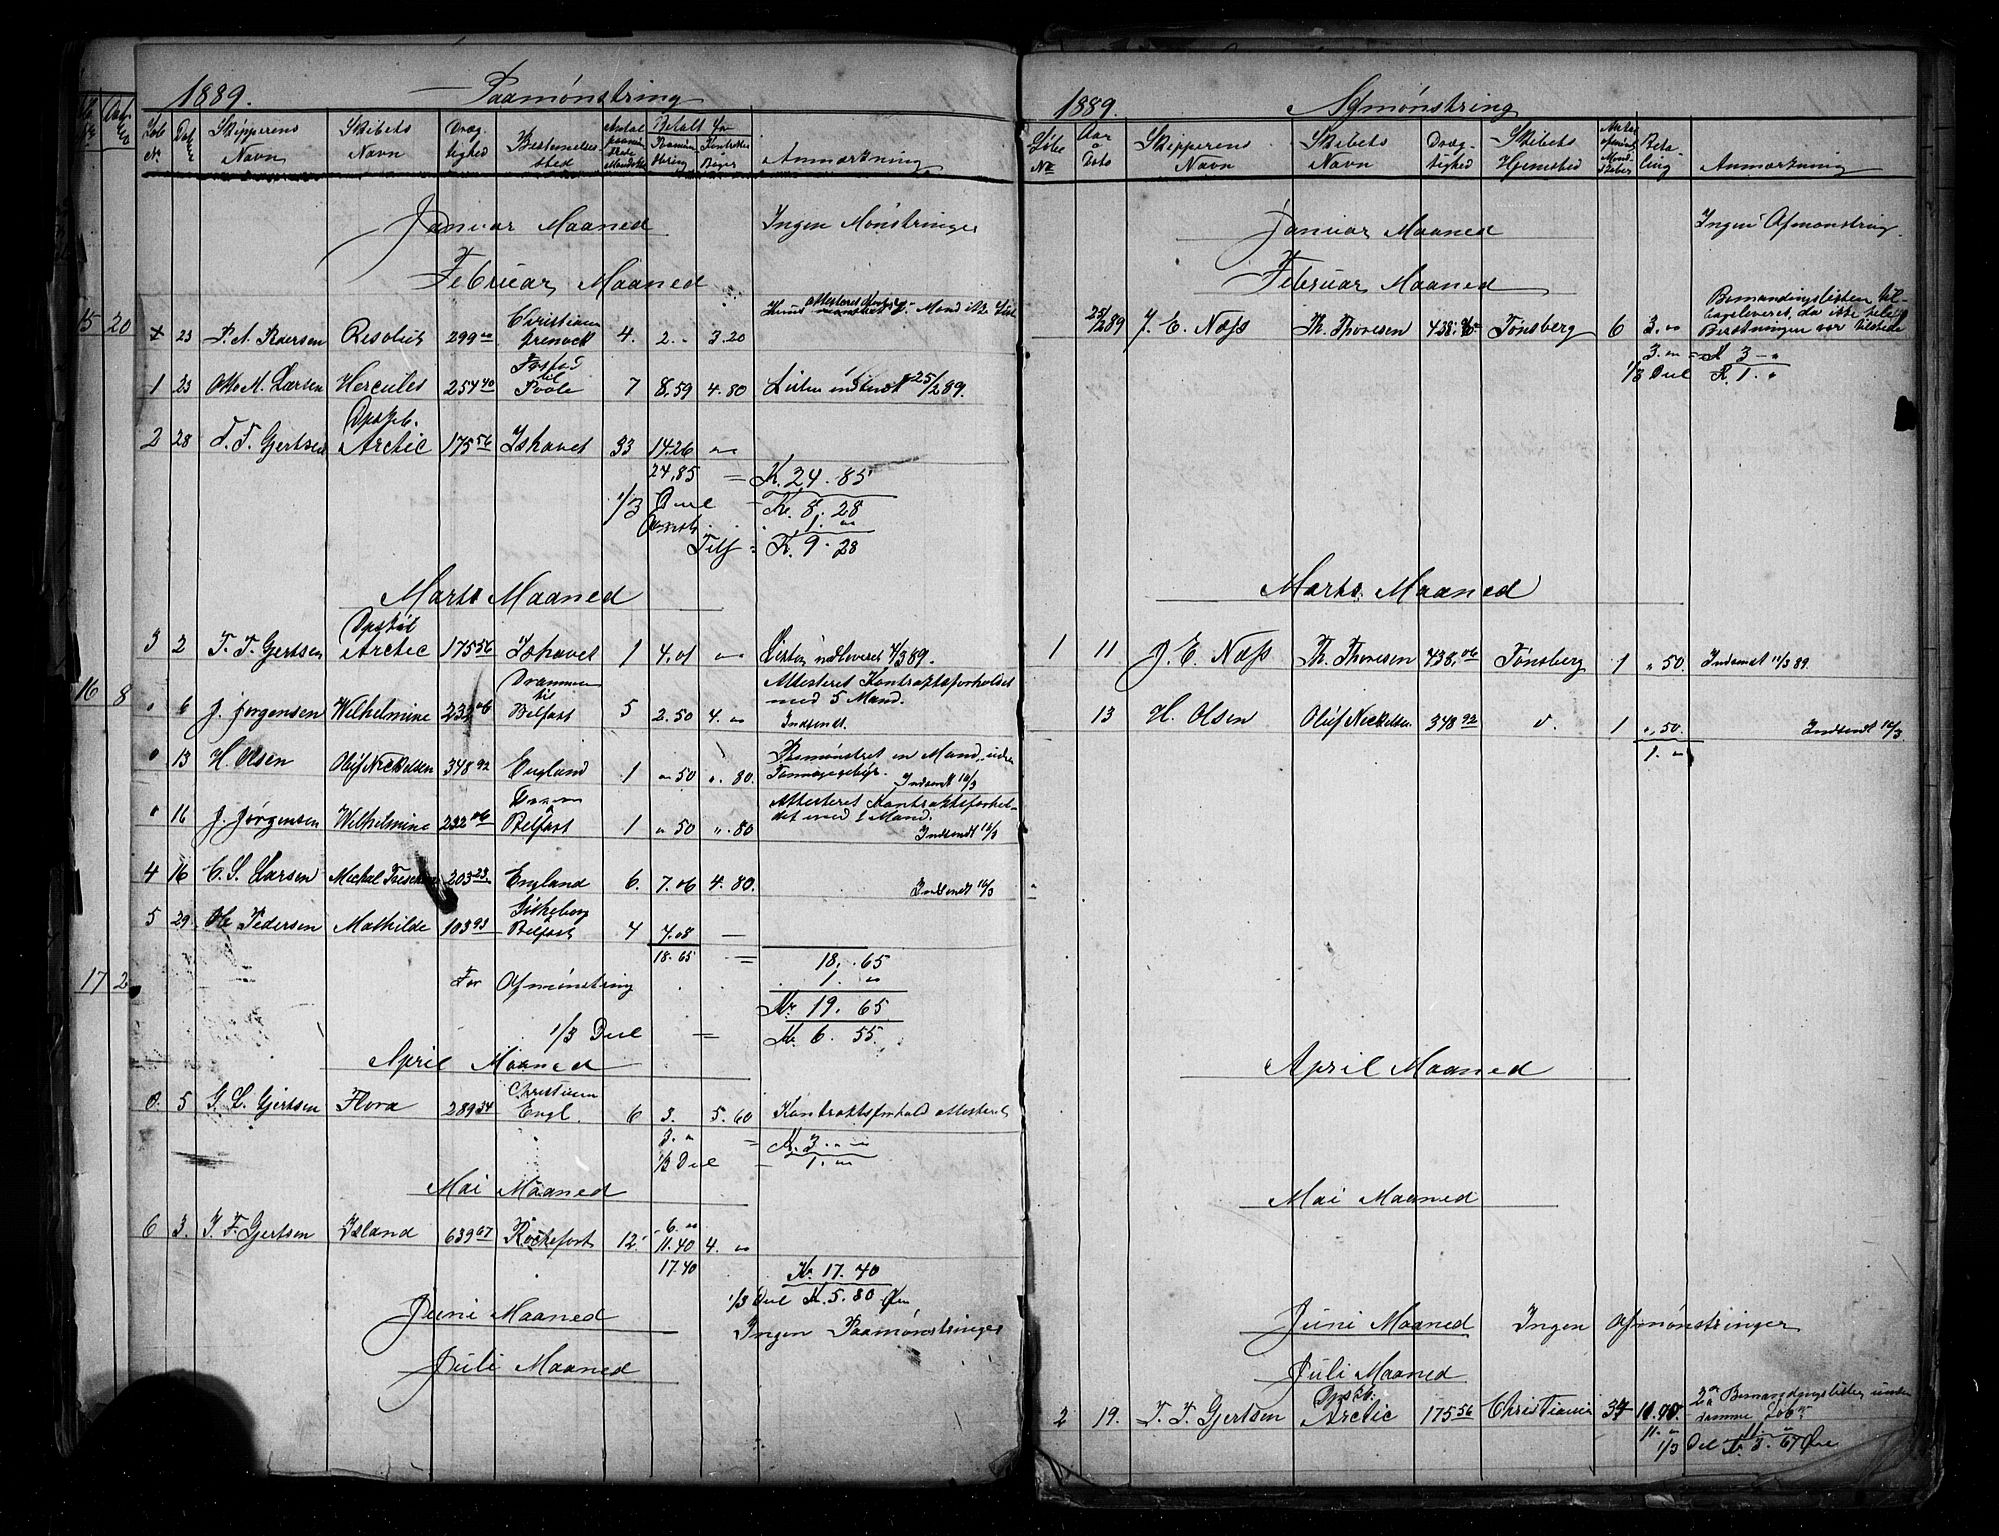 1889. Paamønstring
Løbe No. Dato Skipperens Navn Skibets Navn Dræg-tighed Bestemmelses-sted Antal Betalt for Anmærkning
Januar Maaned Ingen Mønstringer
Februar Maaned
23 P. A. Pedersen Resolut 299 Christiania 4. 2. - 3.20
1 23 Otto M. Larsen Hercules 254 40 til Poole 7 8,59 4.80 Listen indsendt 25/2 89.
Opskb.
2 28 T. T. Gjertsen Arctic 175 56 Ishavet 33 14.26 "
24,85 = K. 24. 85
1/3 Deel K. 8. 28
1. "
Tils = K. 9. 28
Marts Maaned
3 2 T. T. Gjertsen Arctic 175 56 Ishavet 1 4.01 " Listen udleveret 4/3 89.
" 6 J. Jørgensen Wilhelmine 232 06 Drammen til Belfast 5 2.50 4. " Attesteret Kontraktsforholdet med 5 Mand. Indsendt.
" 13 H. Olsen Oluf Nickelsen 348 92 England 1 " 50 " 80. Paamønstret en Mand, uden Tonnagegebyr. Indsendt 16/3
" 16 J. Jørgensen Wilhelmine 232 06 Belfast 1 " 50 ". 80 Attesteret Kontraktsforhol-det med 1 Mand. Indsendt 16/3
4 16 C. S. Larsen 203 23 England 6. 7.06 4. 80. Indsendt 16/3
5 29. Ole Pedersen Mathilde 103 93 Belfast 4 4.08 —
18.65 = 18. 65
For Afmønstring 1. "
Kr. 19. 65
1/3 Deel = Kr. 6. 55
April Maaned
0. 5 G. L. Gjertsen Flora 289 34 Christiania Engl. 6 3. 5. 60 Kontraktsforhold attesteret
3. " = K. 3. "
1/3 Deel — 1. "
Mai Maaned
6 3. T. F. Gjertsen Island 639 67 Rochefort 12 6. " 11.40 4. "
17.40 Kr. 17. 40
1/3 Deel K. 5. 80 Øre
Juni Maaned Ingen Paamønstringer
Juli Maaned
15 20
16 8
17 2
1889. Afmønstring
Løbe No Aar o Dato Skipperens Navn Skibets Navn Dræg-tighed Skibets Hjemsted Beta-ling Anmærkning
Januar Maaned Ingen Afmønstring.
Februar Maaned
25/2 89 J. E. Næss Th. Thoresen 438. 06 Tønsberg 6 3. " Bemandingslisten til-bageleveret, da ikke hele Besætningen var tilstede
3. " = K 3 - "
1/3 Deel K. 1. "
Marts Maaned
1 11 J. E. Næss Th. Thoresen 438,06 Tønsberg 1 " 50. Indsendt 11/3 89.
13 H. Olsen Oluf Nickelsen 348 92 1 ", 50. Indsendt 16/3.
1. "
April Maaned
Mai Maaned
Juni Maaned Ingen Afmønstringer
Juli Maaned
Opskb.
2 19. T. T. Gjertsen Arctic 175 56 Christiania 34 11.90. 2 Bemandingslister under samme Løb No
11. "
1/3 Deel K. 3. 67 Øre